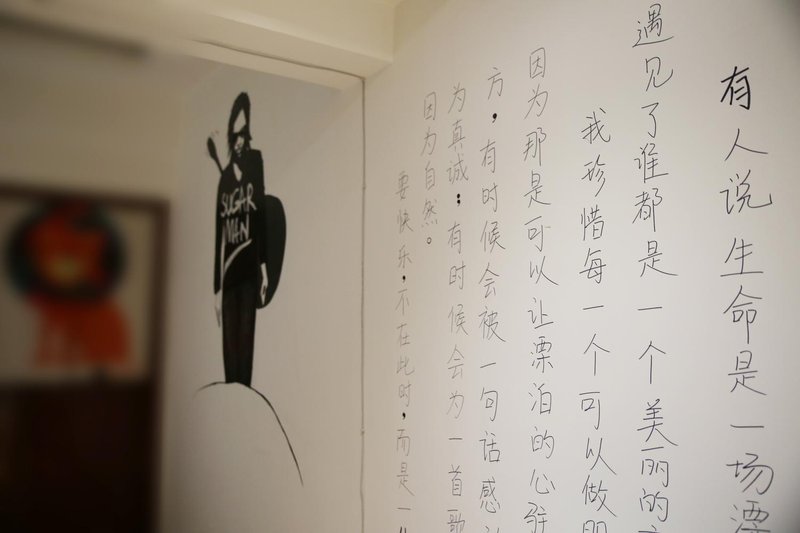 有人说生命是一场漂
遇见了谁都是一个美丽的
我珍惜每一个可以做
因为那是可以让漂泊的心驻
方，有时候会被一句话感
为真诚；有时候会为一首歌
因为自然。
要快乐，不在此时，而是一
SUGAR
MAN